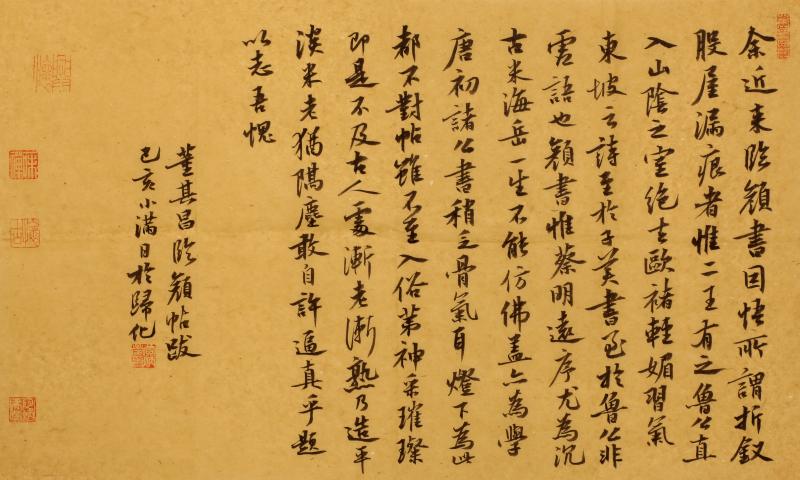 余近来臨顏書因悟所謂折釵
股屋漏痕者惟二王有之魯公直
入山陰之室絶去歐褚輕媚習氣
東坡云詩至於子美書至於魯公非
虛語也顏書惟蔡明遠序尤為沉
古米海岳一生不能仿佛盖亦為學
唐初諸公書稍乏骨氣耳燈下為此
都不對帖雖不至入俗第神采璀璨
即是不及古人處漸老漸熟乃造平
淡米老猶隔塵敢自許逼真乎題
以志吾愧
董其昌臨顏帖跋
己亥小滿日於歸化